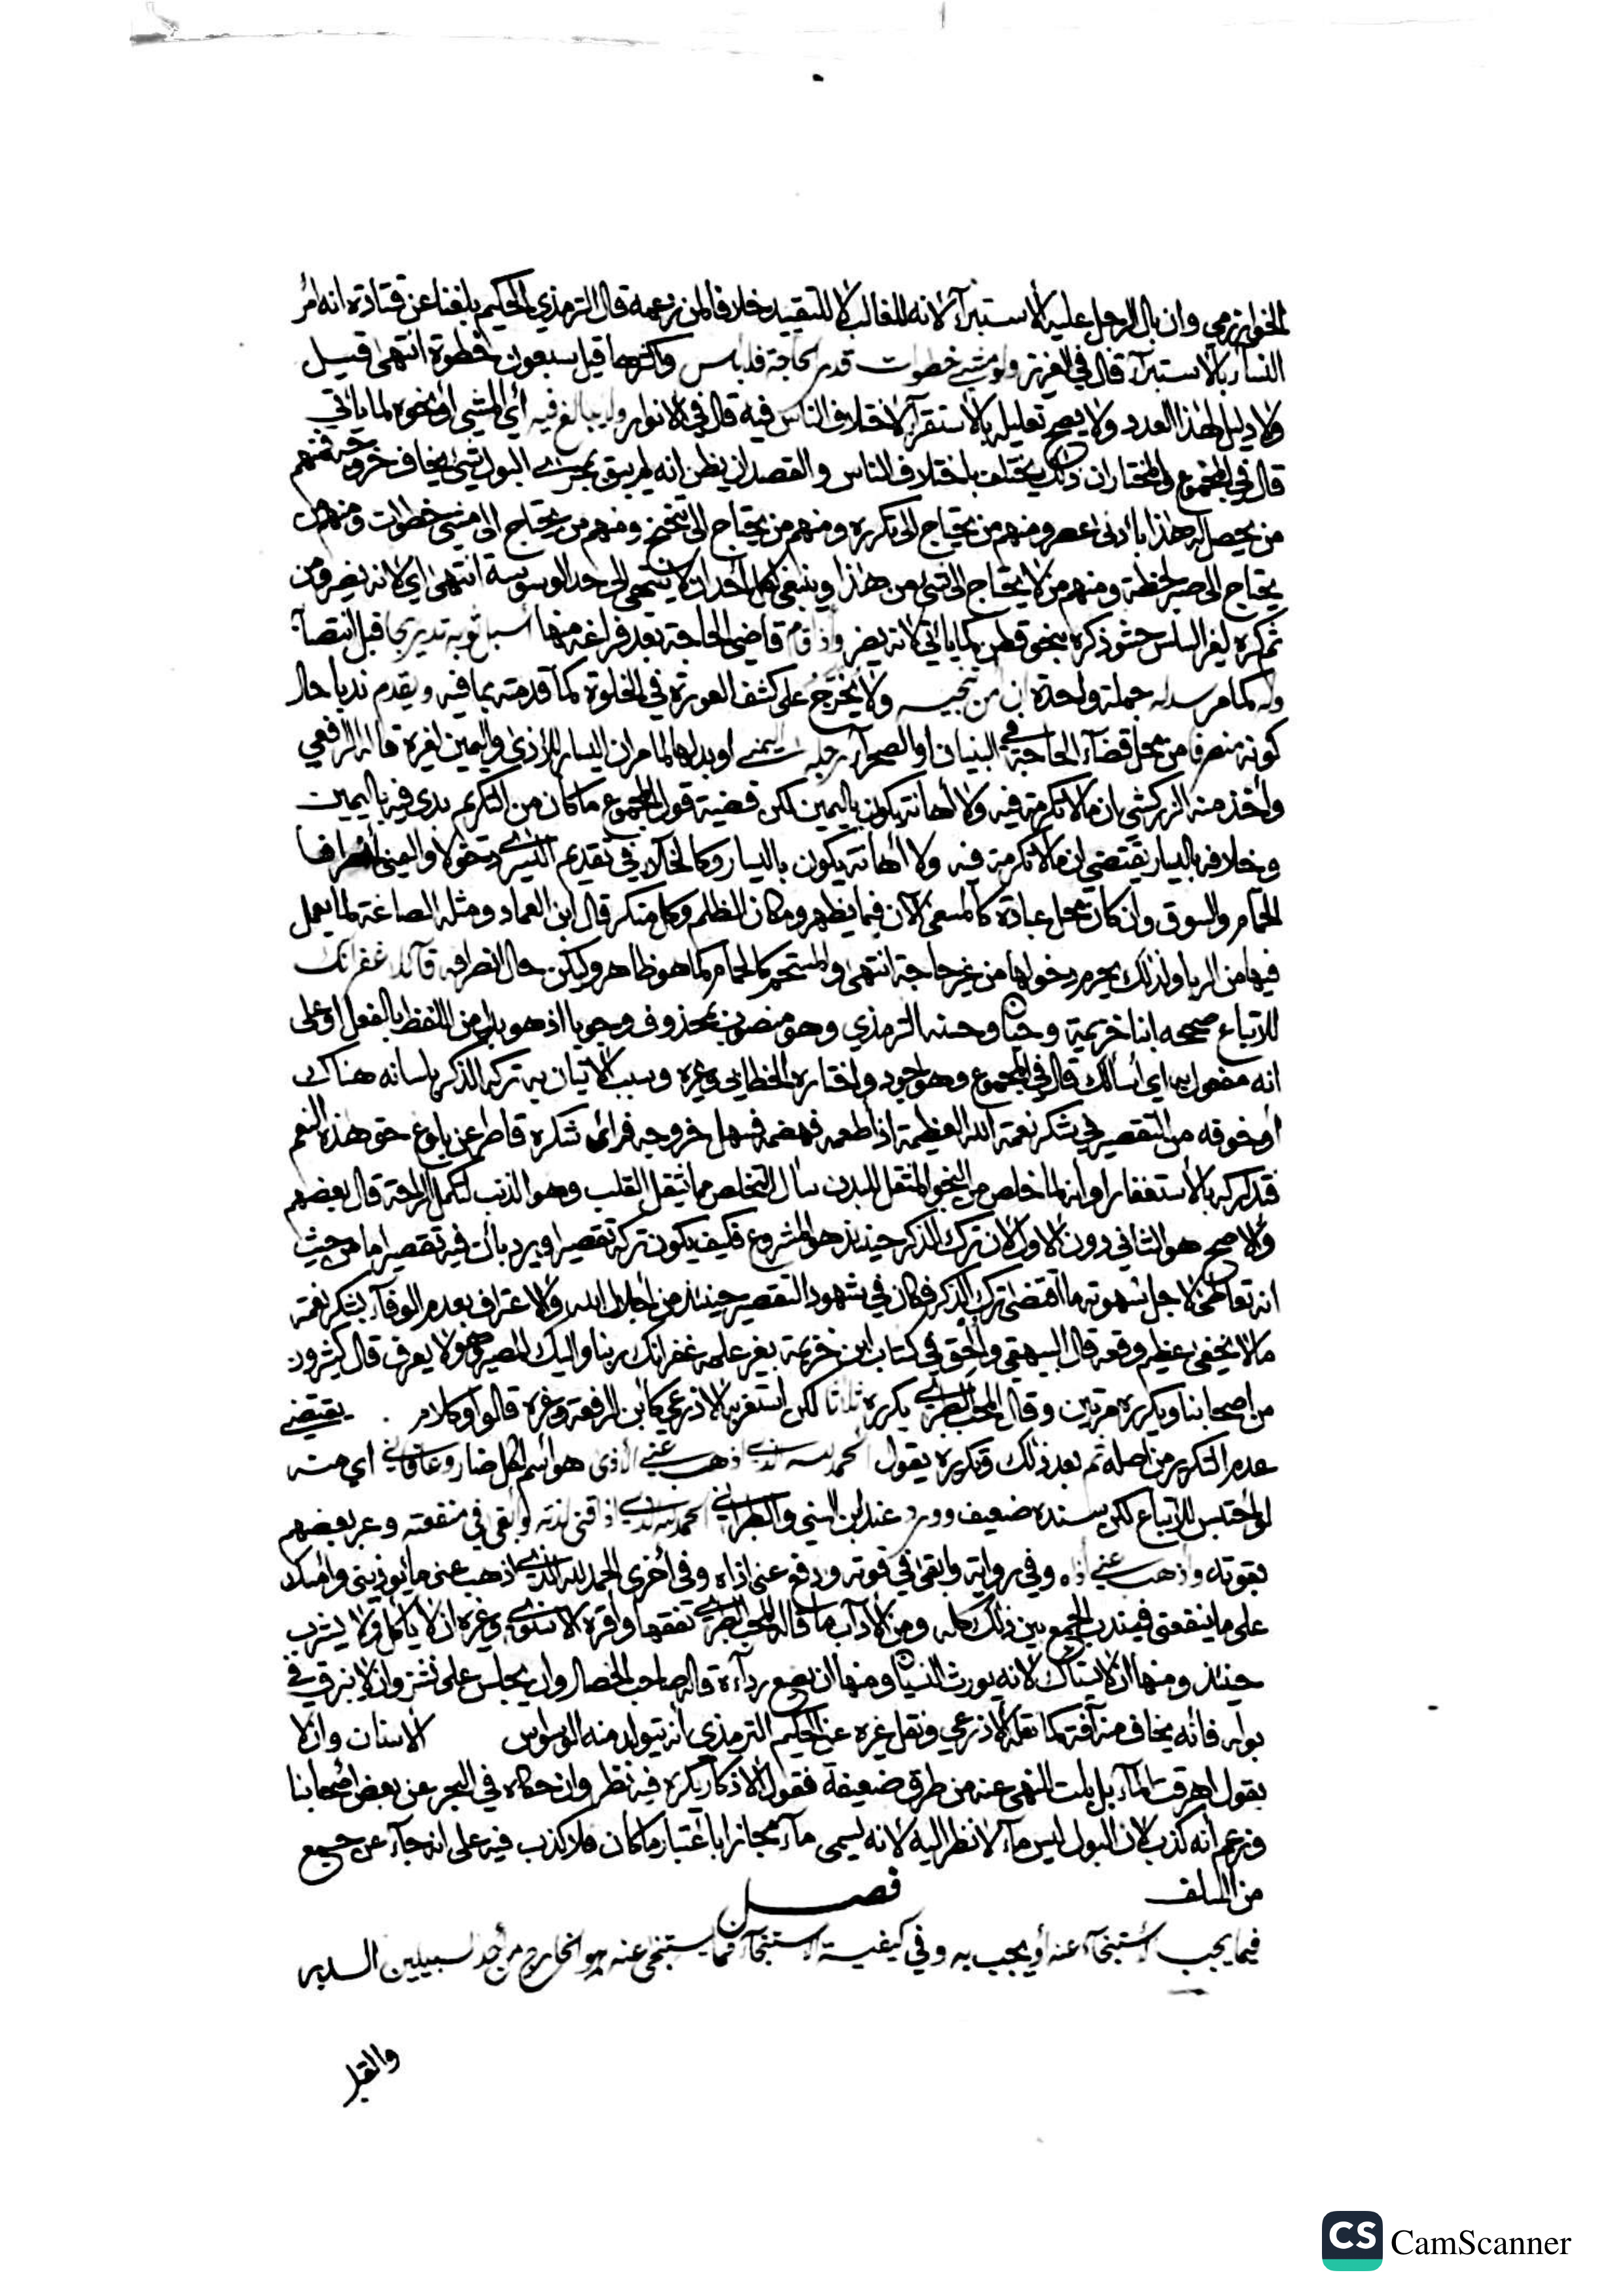 الخوارزمي وان بال الرجل عليه الأستبرآء لانه للغالب لا للتقييد خلافا لمن زعمه قال الترمذي الحكيم بلغنا عن قتادة انه امر
النسآء بالأستبرآء قال في العزيز ولو مشى خطوات قدر الحاجة فلا باس واكثرها قيل سبعون خطوة انتهى قيل
ولا دليل لهذا العدد ولا يصح تعليله بالأستقرآء لاختلاف الناس فيه قال في الانوار ولا يبالغ فيه أي المشي أو نحوه لما ياتي
قال في المجموع والمختار ان ذلك يختلف باختلاف الناس والقصد ان يظن انه لم يبق بمجرى البول شي يخاف خروجه فمنهم
من يحصل له هذا بأدنى عصر ومنهم من يحتاج الى تكرره ومنهم من يحتاج الى تنحنح ومنهم من يحتاج الى مشي خطوات ومنهم من
يحتاج الى صبر لحظة ومنهم من لا يحتاج الى شي من هذا وينبغي لكل أحد ان لا ينتهي الى حد الوسوسة انتهى اي لانه يضر ومن
ثم كره لغير السلس حشو ذكره بنحو قطن كما ياتي لانه يضر وإذا قام قاضي الحاجة بعد فراغه منها أسبل ثوبه تدريجا قبل انتصابه
وله كما مر سدله جملة واحدة ان أمن تنجيسه ولا يُخَرَّجُ على كشف العورة في الخلوة كما قدمته بما فيه ويقدم ندبا حال
كونه منصرفا من محل قضآء الحاجة في البنيان او الصحرآء رجله اليمنى او بدلها لما مر ان اليسار للأذى واليمين لغيره قاله الرافعي
وأخذ منه الزركشي ان ما لا تكرمة فيه ولا أهانة يكون باليمين لكن قضية قول المجموع ما كان من التكريم بدى فيه باليمين
وخلافه باليسار يقتضي ان ما لا تكرمة فيه ولا أهانة يكون باليسار وكالخلآء في تقديم اليسرى دخولا واليمنى أنصرافا
الحمام والسوق وان كان محل عبادة كالمسعى الآن فيما يظهر ومكان الظلم وكل منكر قال ابن العماد ومثله الصاغة لما يعمل
فيها من الربا ولذلك يحرم دخولها من غير حاجة انتهى والمستحم كالحمام كما هو ظاهر وليكن حال انصرافه قآئلا غفرانك
للاتباع صححه ابنا خزيمة وحبان وحسنه الترمذي وهو منصوب بمحذوف وجوبا اذ هو بدل من اللفظ بالفعل او على
انه مفعول به اي أسالك قال في المجموع وهو اجود واختاره الخطابي وغيره وسبب الاتيان به تركه الذكر بلسانه هناك
أو خوفه من التقصير في شكر نعمة الله العظيمة اذ اطعمه فهضمه فسهل خروجه فرأى شكره قاصرا عن بلوغ حق هذه النعم
فتداركه بالأستغفار او أنه لما خلص من النجو المثقل للبدن سأل التخلص مما يثقل القلب وهو الذنب لتكمل الراحة قال بعضهم
والاصح هو الثاني دون الاول لان ترك الذكر حينئذ هو المشروع فكيف يكون تركه تقصيرا ويرد بأن فيه تقصيرا ما من حيث
انه تعاطى لاجل شهوته ما اقتضى ترك الذكر فكان في شهود التقصير حينئذ من اجلال الله والاعتراف بعدم الوفآء بشكر نعمته
مالا يخفى عظيم وقعه قال البيهقي والحق في كتاب ابن خزيمة بغير علمه غفرانك ربنا واليك المصير وهو لا يعرف قال كثيرون
من اصحابنا ويكرره مرتين وقال المحب الطبري يكرره ثلاثا لكن أستغربه الاذرعي كأبن الرفعة وغيره قالوا وكلام يقتضي
عدم التكرير من اصله ثم بعد ذلك وتكريره يقول الحمد لله الذي اذهب عني الأذى هو اسم لكل ضار وعافاني اي منه
لو أحتبس للاتباع لكن بسنده ضعيف وورد عند ابن السني والطبراني الحمد لله الذي اذاقني لذته وأبقى في منفعته وعبر بعضهم
بقوته واذهب عني أذاه وفي رواية وابقى في قوته ودفع عني اذاه وفي أخرى الحمد لله الذي اذهب عني ما يؤذيني وأمسك
على ما ينفعني فيندب الجمع بين ذلك كله ومن الأدآب ما قاله المحب الطبري تفقها وأقره الاسنوي وغيره ان لا يأكل ولا يشرب
حينئذ ومنها ان لا يستاك لانه يورث النسيان ومنها ان يضع ردآءه قاله صاحب الخصال وان يجلس على نشز وان لا يبزق في
بوله فأنه يخاف منه آفة كما نقله الاذرعي ونقل غيره عن الحكيم الترمذي أنه يتولد منه الوسواس الاسنان وان لا
يقول اهرقت المآء بل بلت للنهي عنه من طرق ضعيفة فقول الاذكار يكره فيه نظر وان حكاه في البحر عن بعض اصحابنا
وزعم أنه كذب لان البول ليس مآء لا نظر اليه لانه يسمى مآء مجازا باعتبار ما كان فلا كذب فيه على انه جآء عن جمع
من السلف
فصل
فيما يجب الأستنجآء عنه أو يجب به وفي كيفية الاستنجآء فما يستنجى عنه هو الخارج من أحد السبيلين الدبر
والقبل
CS CamScanner